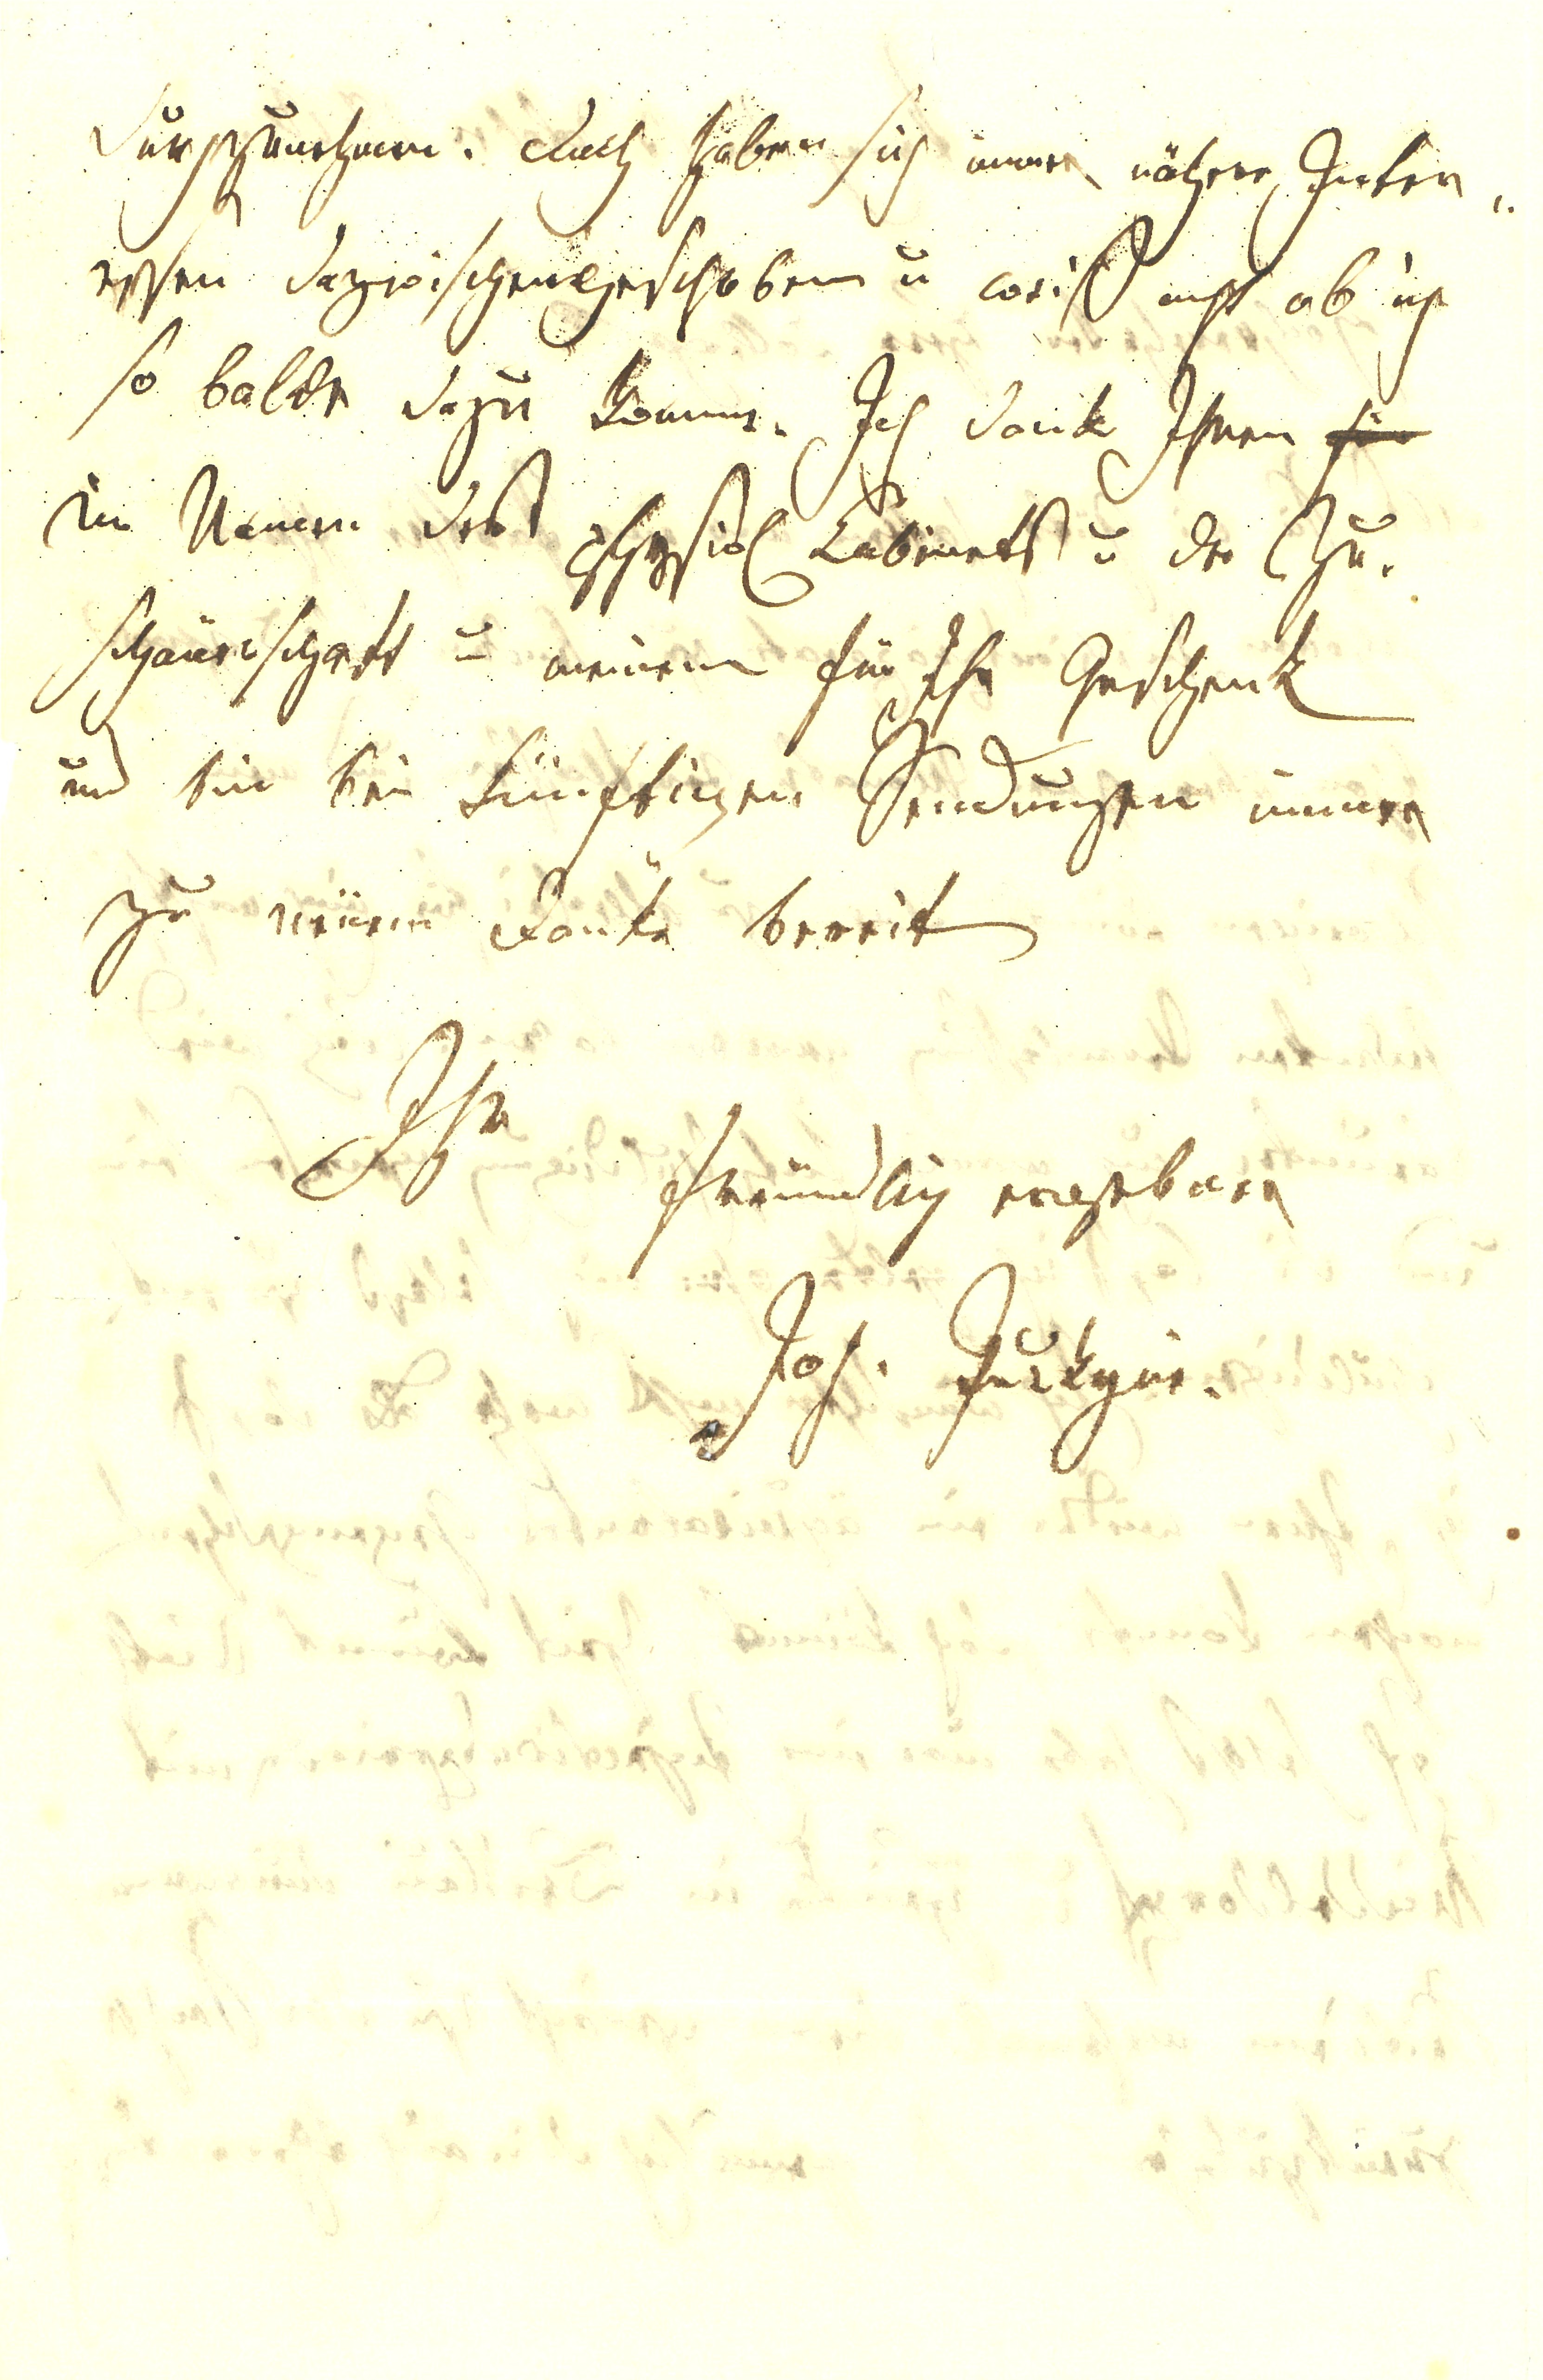 durchzunehmen. Auch haben sich immer nähere Inter„
essen dazwischengeschoben u weiß nicht ob ich
so balde dazu komme. Ich danke Ihnen für
im Namen des physiol Cabinets u der Zu„
schauerschaft u meinem für Ihr Geschenk
und bin bei künftigen Sendungen immer
zu neuem Danke bereit
Ihr
freundlich ergebener
Joh. Purkyne.